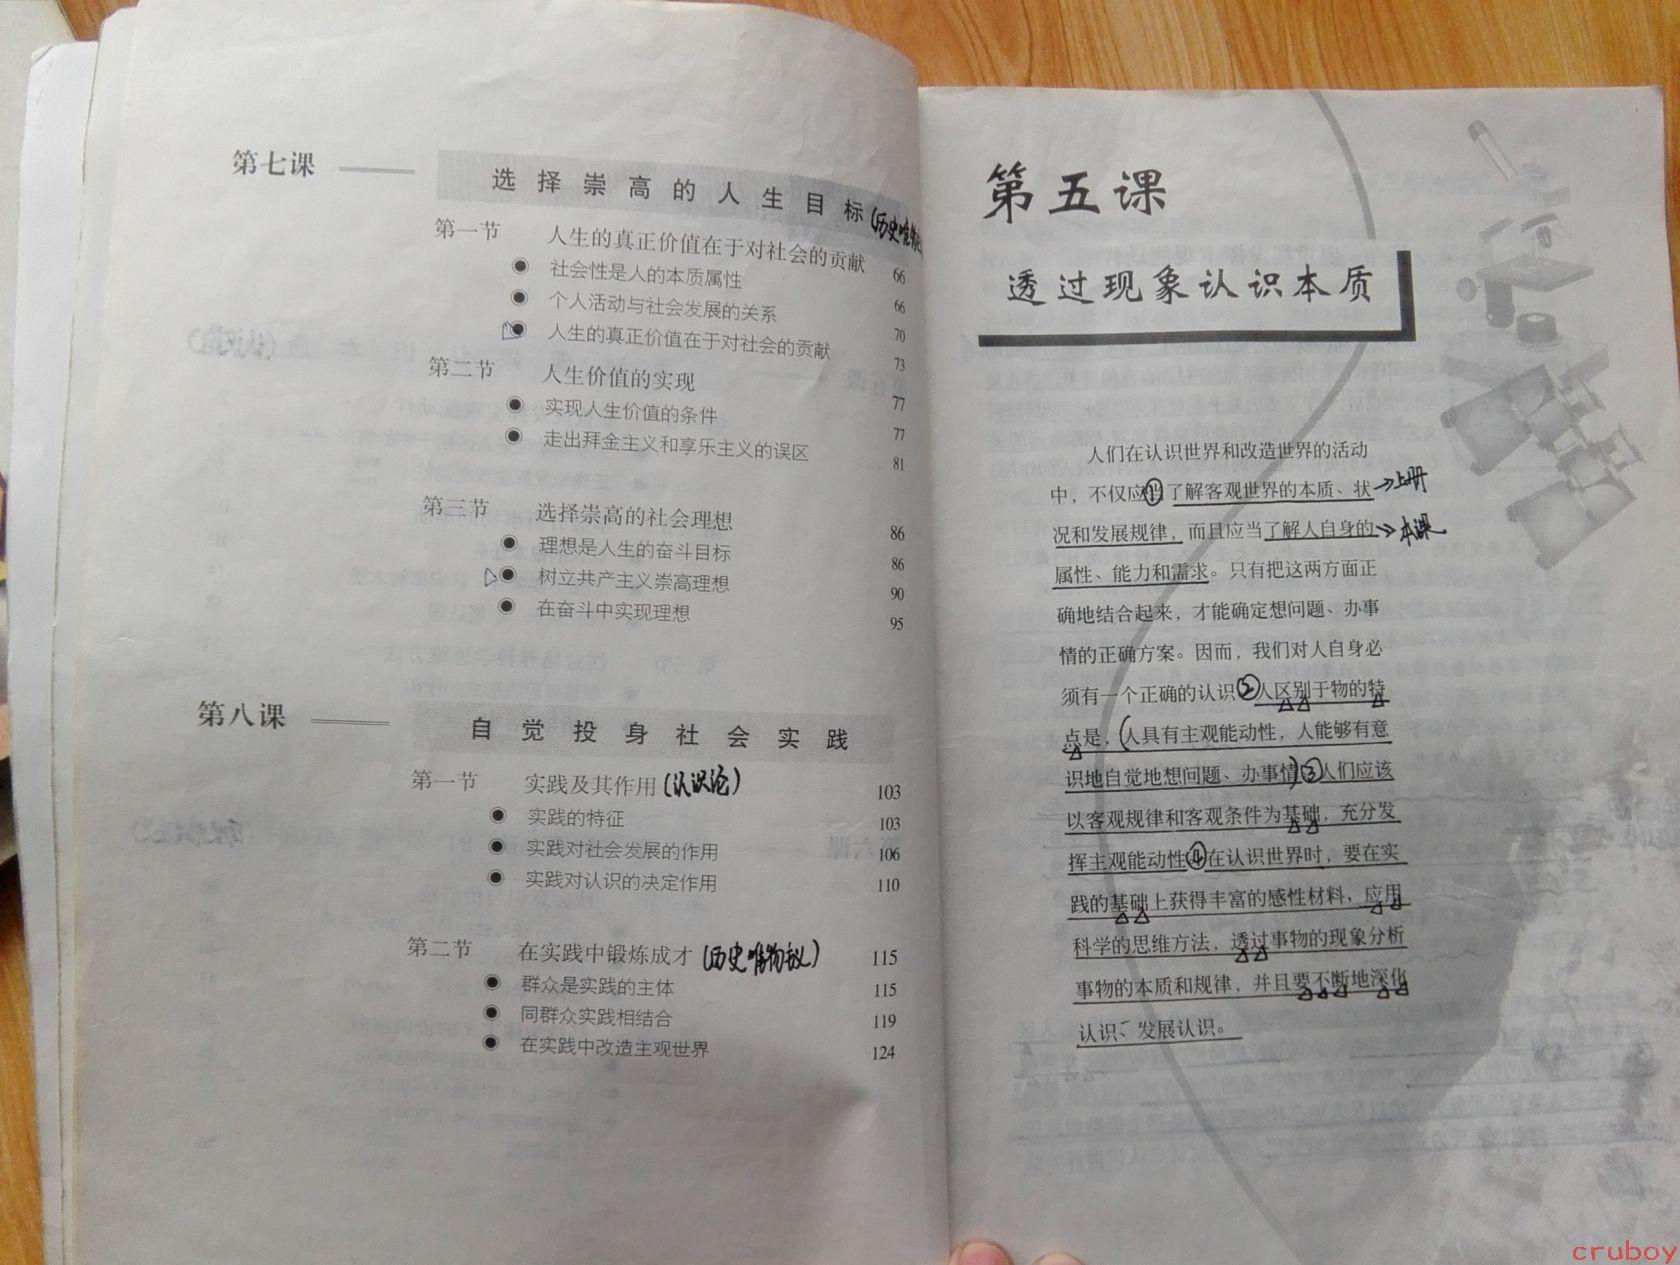 第七课
选择崇高的人生目标(历史唯物
第一节 人生的真正价值在于对社会的贡献 66
社会性是人的本质属性 66
个人活动与社会发展的关系 70
人生的真正价值在于对社会的贡献 73
第二节 人生价值的实现 77
实现人生价值的条件 77
走出拜金主义和享乐主义的误区 81
第三节 选择崇高的社会理想 86
理想是人生的奋斗目标 86
树立共产主义崇高理想 90
在奋斗中实现理想 95
第八课
自觉投身社会实践
第一节 实践及其作用(认识论) 103
实践的特征 103
实践对社会发展的作用 106
实践对认识的决定作用 110
第二节 在实践中锻炼成才(历史唯物议) 115
群众是实践的主体 115
同群众实践相结合 119
在实践中改造主观世界 124
第五课
透过现象认识本质
人们在认识世界和改造世界的活动
中，不仅应当①了解客观世界的本质、状→上册
况和发展规律，而且应当了解人自身的→本课
属性、能力和需求。只有把这两方面正
确地结合起来，才能确定想问题、办事
情的正确方案。因而，我们对人自身必
须有一个正确的认识②人区别于物的特
点是，(人具有主观能动性，人能够有意
识地自觉地想问题、办事情)③人们应该
以客观规律和客观条件为基础，充分发
挥主观能动性④在认识世界时，要在实
践的基础上获得丰富的感性材料，应用
科学的思维方法，透过事物的现象分析
事物的本质和规律，并且要不断地深化
认识、发展认识。
cruboy